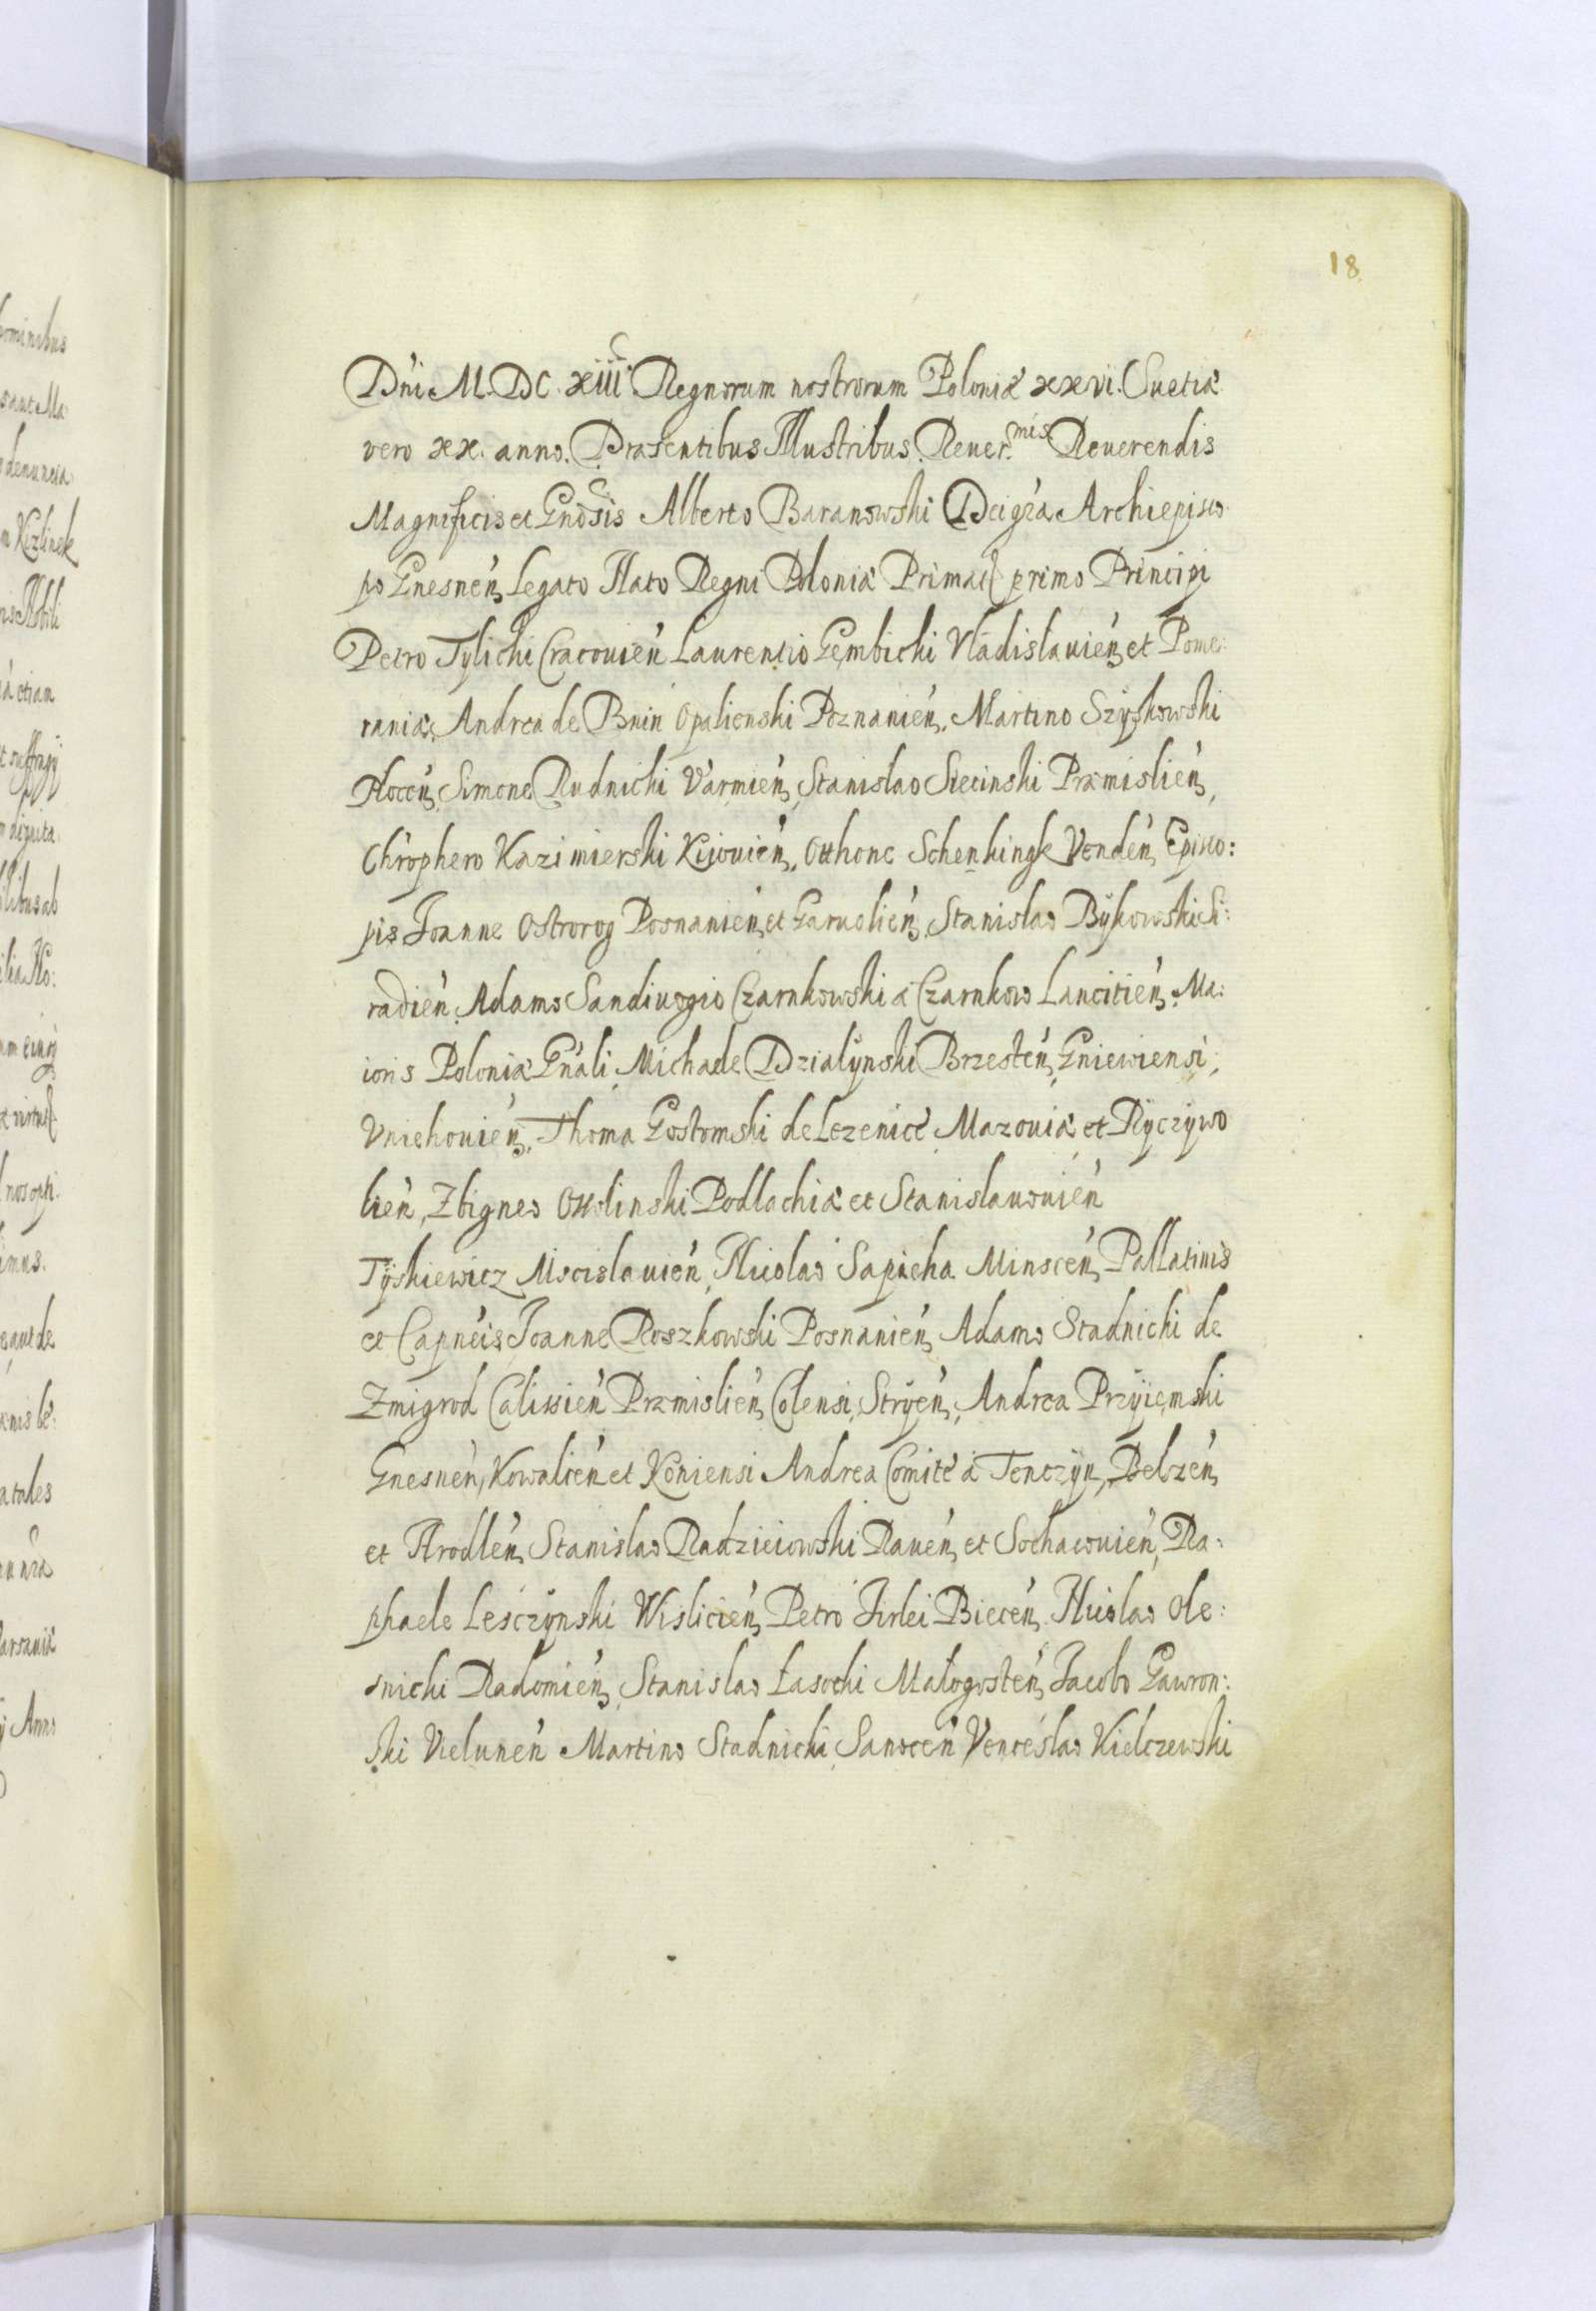 18
Dni M.DC.xiii. Regnorum nostrorum Poloniæ xxvi. Suetiæ
vero xx. anno. Præsentibus Illustribus Reuer.mis Reuerendis
Magnificis et Gnosis Alberto Baranowski Dei gra Archiepisco
po Gnesnen, Legato Nato Regni Poloniæ Primate primo Principi
Petro Tylicki Cracouien Laurentio Gembicki Vladislauien, et Pome:
raniæ, Andrea de Bnin Opalienski Poznanien, Martino Szyszkowski
Plocen, Simone Rudnicki Varmien, Stanislao Siecinski Præmislien,
Chrophero Kazimierski Kijouien, Otthone Schenkingk Venden, Episco:
pis Joanne Ostrorog Posnanien, et Garuolien, Stanislao Bykowski Si:
radien, Adamo Sandiuogio Czarnkowski à Czarnkow Lancitien, Ma:
ioris Poloniæ Gnali, Michaele Dzialynski Brzesten, Gniewiensi,
Vniehouien, Thoma Gostomski de Lezenice Mazouiæ et Ryczywo
lien, Zbigneo Ossolinski Podlachiæ et Stanislauouien
Tyskiewicz Mscislauien, Nicolao Sapieha Minscen, Pallatinis
et Capneis, Joanne Roszkowski Posnanien, Adamo Stadnicki de
Zmigrod Calissien Præmislien, Colensi, Stryen, Andrea Przyiemski
Gnesnen, Kowalien et Koniensi Andrea Comite à Tenczyn, Belzen,
et Hrodlen, Stanislao Radzieiowski Rauen, et Sochacouien, Ra:
phaele Lesczynski Wislicien, Petro Firlei Biecen, Nicolao Ole:
snicki Radomien, Stanislao Łasocki Małogosten, Jacobo Gawron:
ski Vielunen Martino Stadnicki, Sanocen Venceslao Kielczewski